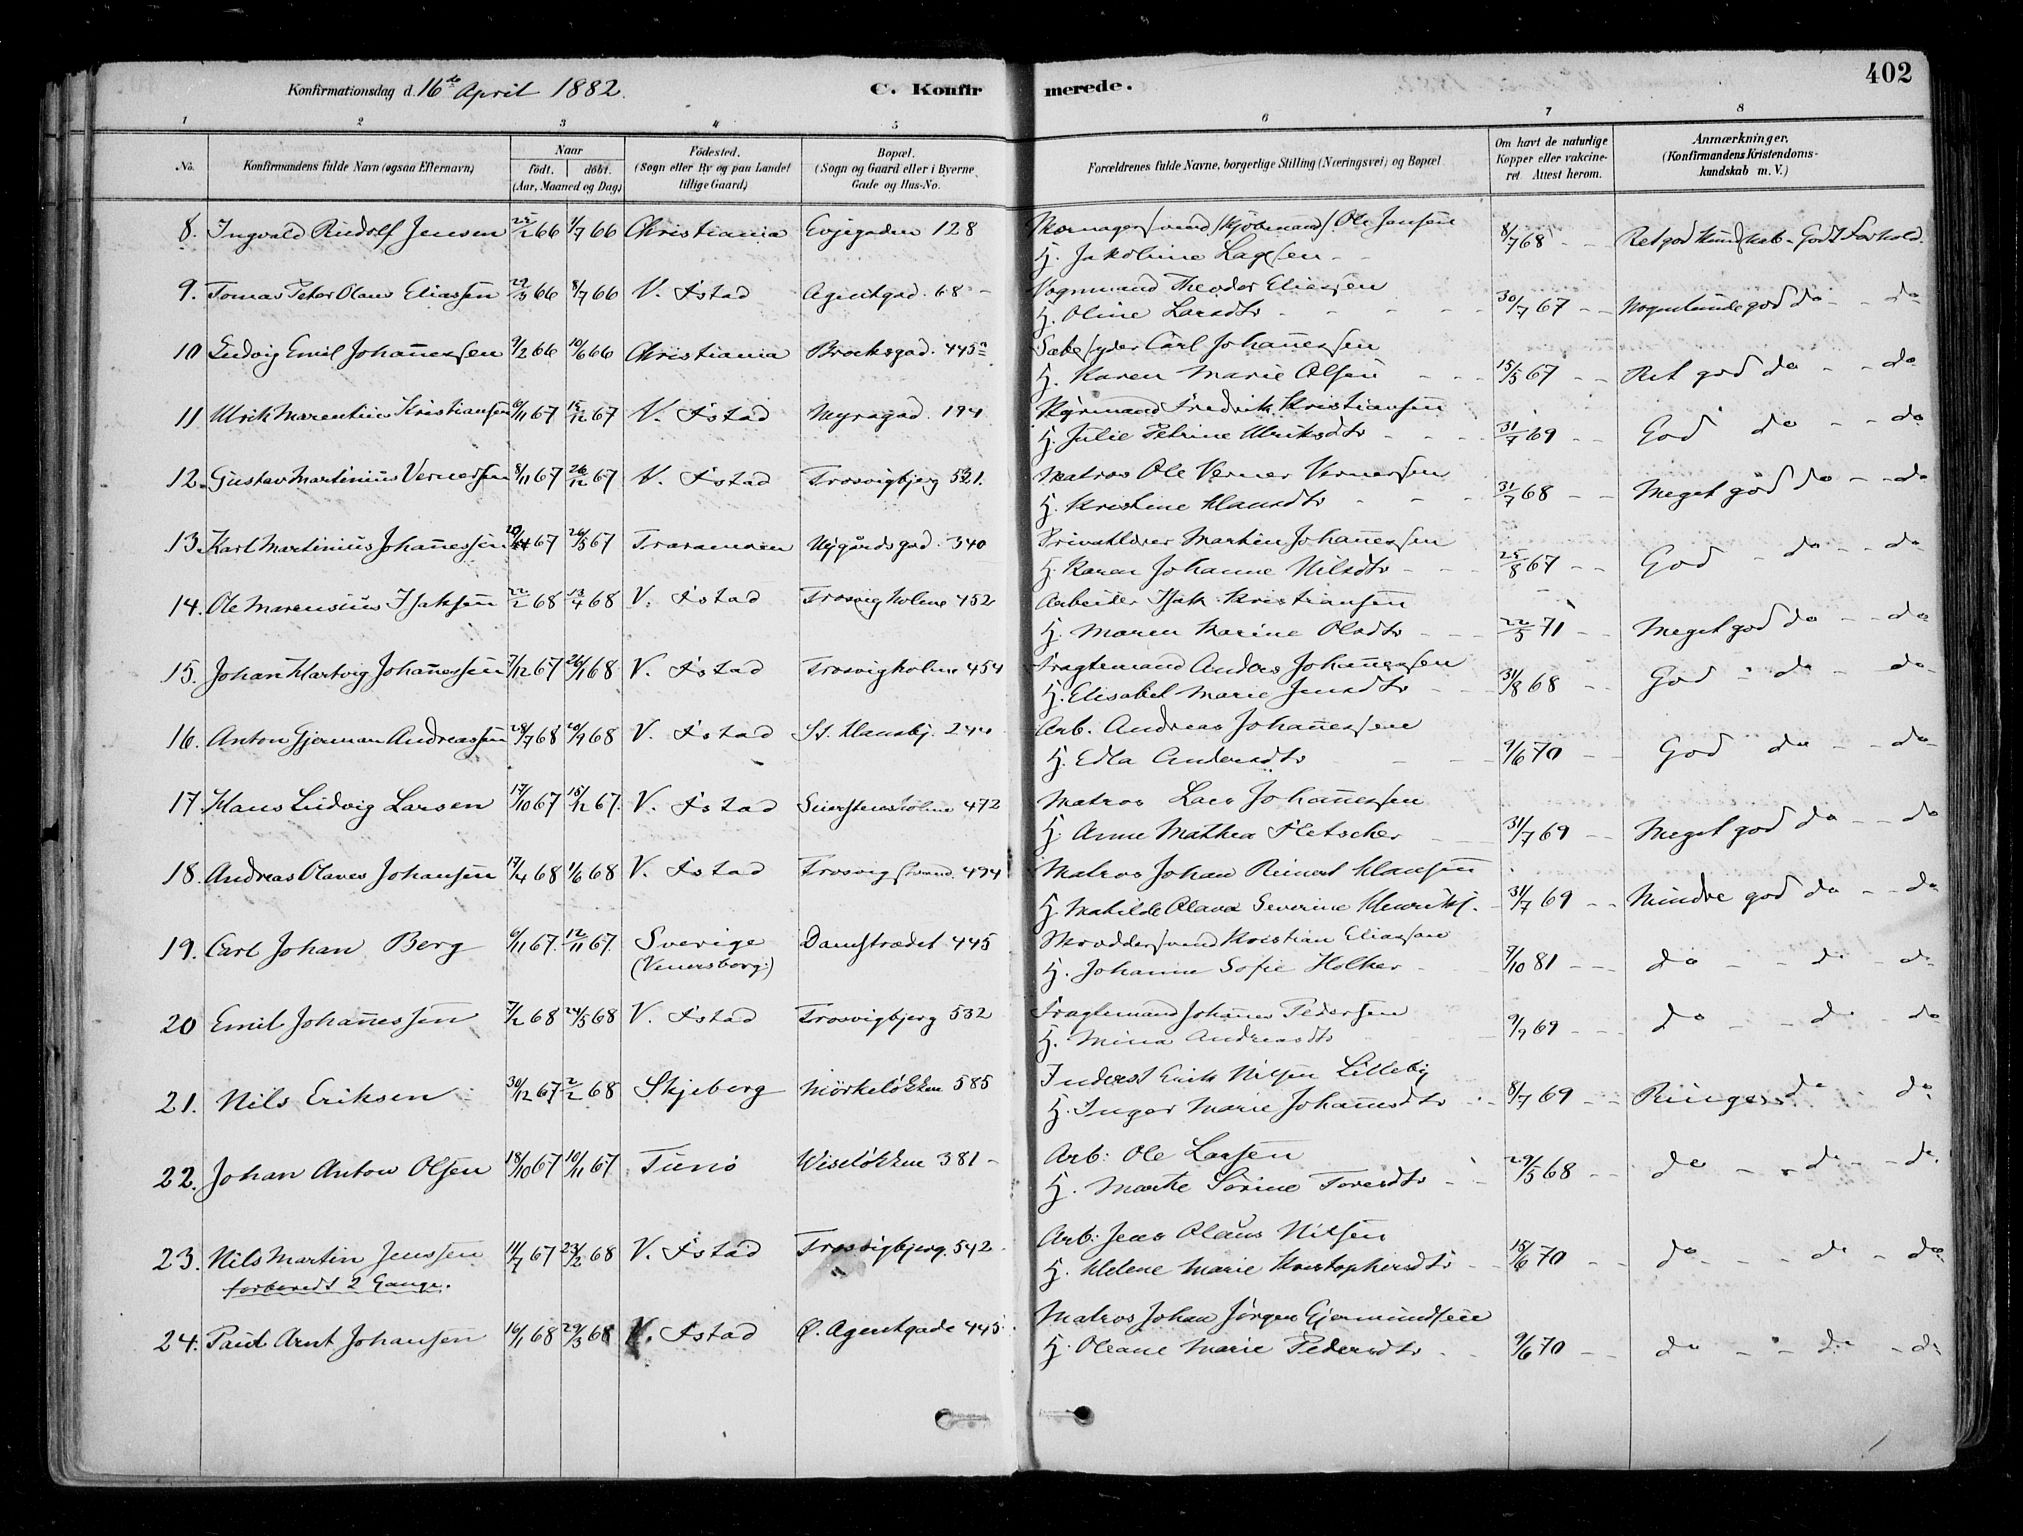 Konfirmationsdag d. 16de April 1882. C. Konfirmerede. 402
1 2 3 4 5 6 7 8
No. Konfirmandens fulde Navn (ogsaa Efternavn) Naar født. døbt. (Aar, Maaned og Dag) Fødested. (Sogn eller By og paa Landet tillige Gaard) Bopæl. (Sogn og Gaard eller i Byerne Gade og Hus-No. Forældrenes fulde Navne, borgerlige Stilling (Næringsvei) og Bopæl. Om havt de naturlige Kopper eller vakcineret. Attest herom. Anmærkninger. (Konfirmandens Kristendomskundskab m. V.)
8. Ingvald Rudolf Jensen 25/2 66 1/7 66 Christiania Evjegaden 128 Ole Jensen
H. Jakobine Lagesen 8/7 68 Ret god Kundskab - Godt Forhold.
9. Tomas Peter Olaus Eliassen 22/3 66 8/7 66 V. Fstad Agentgad. 68 Vognmand Theodor Eliassen
H. Oline Larsdtr 30/7 67 Nogenlunde god do - - do
10 Ludvig Emil Johañessen 9/2 66 10/6 66 Christiania Brocksgad. 445a Sæbesyder Carl Johañessen
H. Karen Marie Olsen 15/5 67 Ret god do - - do
11 Ulrik Marentius Kristiansen 6/11 67 15/12 67 V. Fstad Myragad. 194 Fredrik Kristiansen
H. Julie Petrine Ulriksdtr 31/7 69 God do - - do
12. Gustav Martinius Vernersen 8/11 67 26/12 67 V. Fstad Trosvigbjerg 521. Matros Ole Verner Vernersen
H. Kristine Hansdtr 31/7 68 Meget god do - - do
13. Karl Martinius Johañessen 67 26/5 67 Nygårdsgad. 340 Privatlærer Martin Johañessen
H. Karen Johanne Nilsdtr 25/8 67 God - do - - do
14. Ole Marensius Isaksen 22/2 68 13/4 68 V. Fstad Trosvigholme 452 Arbeider Isak Kristiansen
H. Maren Karine Olsdtr 22/5 71 Meget god do - - do
15. Johan Hartvig Johañessen 7/12 67 26/1 68 V. Fstad Trosvigholme 454 Fragtemand Anders Johañessen
H. Elisabet Marie Jensdtr 31/8 68 God - do - do
16. Anton Gjerman Andreassen 28/7 68 20/9 68 V. Fstad St. Hansbj. 244 Arb. Andreas Johañessen
H. Edla Andersdtr 9/6 70 God do - - do
17. Hans Ludvig Larsen 17/10 67 15/12 67. V. Fstad Seierstensholme 472 Matros Lars Johañessen
H. Anne Mathea Fletscher 31/7 69 Meget god do - - do
18. Andreas Olaves Johansen 17/4 68 1/6 68 V. Fstad Trosvigstrand. 494 Matros Johan Reinert Hansen
H. Matilde Olava Severine Henriks. 31/7 69 Mindre god do - - do
19. Carl Johan Berg 6/11 67. 12/11 67. Sverige (Venersborg) Damstrædet 445 Skræddersvend Kristian Eliassen
H. Johanne Sofie Holker 7/10 81 do - - do - do
20 Emil Johañessen 7/2 68 24/5 68 V. Fstad Trosvigbjerg 532 Fragtemand Johannes Pedersen
H. Mina Andreasdtr 9/9 69 do - - do - do
21. Nils Eriksen 30/12 67 2/2 68 Skjeberg Mørkeløkken 585 Inderst Erik Nilsen Lilleby
H. Inger Marie Johannesdtr 8/7 69 Ringe do do
22. Johan Anton Olsen 18/10 67 10/11 67. Tunø Wiseløkken 381 Arb: Ole Larsen
H. Marte Sørine Toresdtr 29/5 68 do - - do - - do
23. Nils Martin Jenssen 11/7 67 23/2 68 V. Fstad Trosvigbjerg. 542 Arb: Jens Olaus Nilsen
forberedt 2 Gange. H. Helene Marie Kristophersdtr 15/6 70 do - - do - do
24. Paul Arnt Johansen 16/1 68 29/3 68 V. Fstad Ø. Agentgade 445 Matros Johan Jørgen Gjermundsen
H. Oleane Marie Pedersdtr 9/6 70 do - - do - do